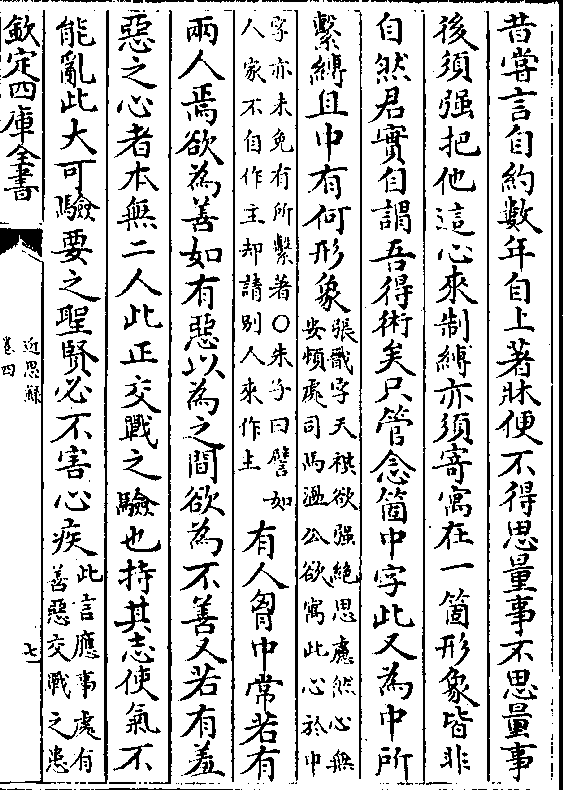 昔嘗言自約數年自上著牀便不得思量事不思量事
後須强把他這心來制縛亦須寄寓在一箇形象皆非
自然君實自謂吾得術矣只管念箇中字此又為中所
繫縛且中有何形象張戩字天祺欲强絶思慮然心無
安頓處司馬溫公欲寓此心於中
字亦未免有所繫著○朱子曰譬如
人家不自作主却請别人來作主有人胷中常若有
兩人焉欲為善如有惡以為之間欲為不善又若有羞
惡之心者本無二人此正交戰之驗也持其志使氣不
能亂此大可驗要之聖賢必不害心疾此言應事處有
善惡交戰之患
欽定四庫全書
近思錄
卷四
七